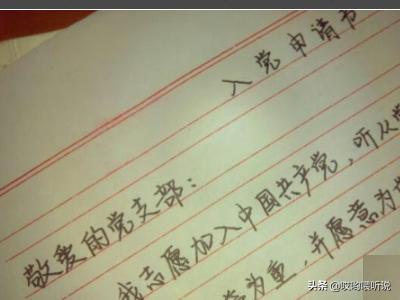 入党申请书
敬爱的党支部：
我志愿加入中国共产党，听从
为重，并愿意为
头条 @哎哟喂听说